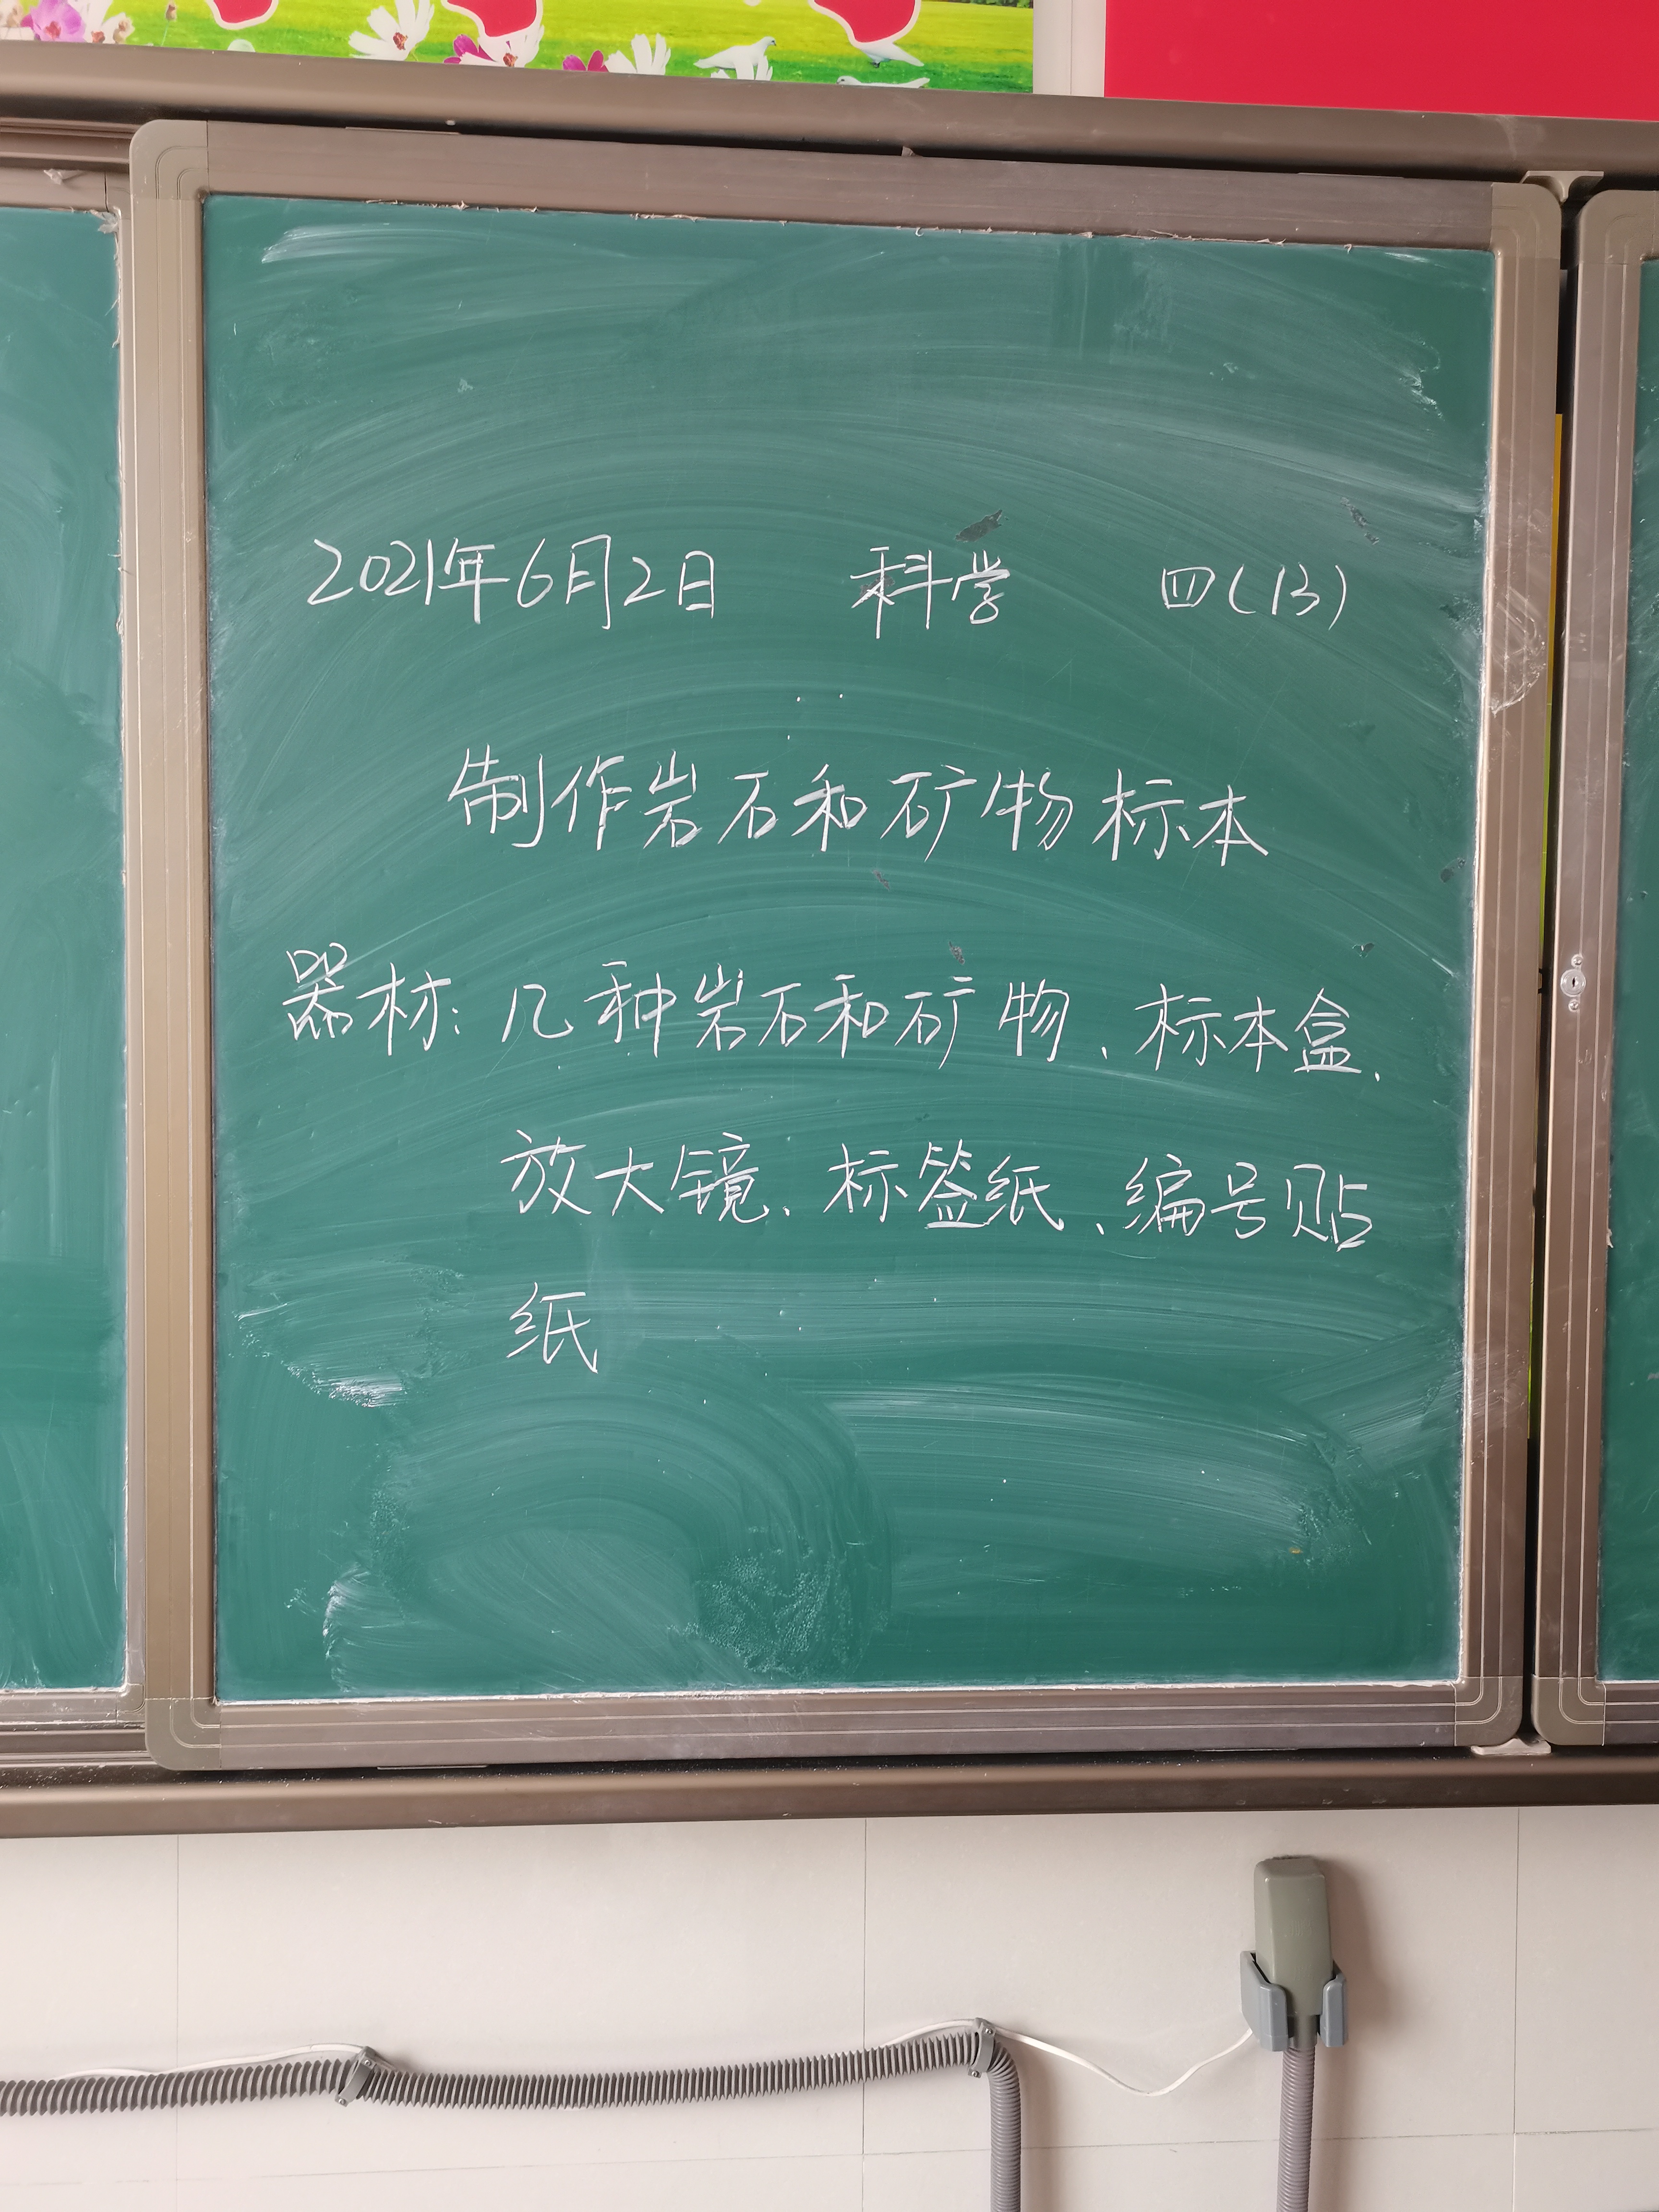 2021年6月2日 科学 四(13)
制作岩石和矿物标本
器材：几种岩石和矿物、标本盒、
放大镜、标签纸、编号贴
纸